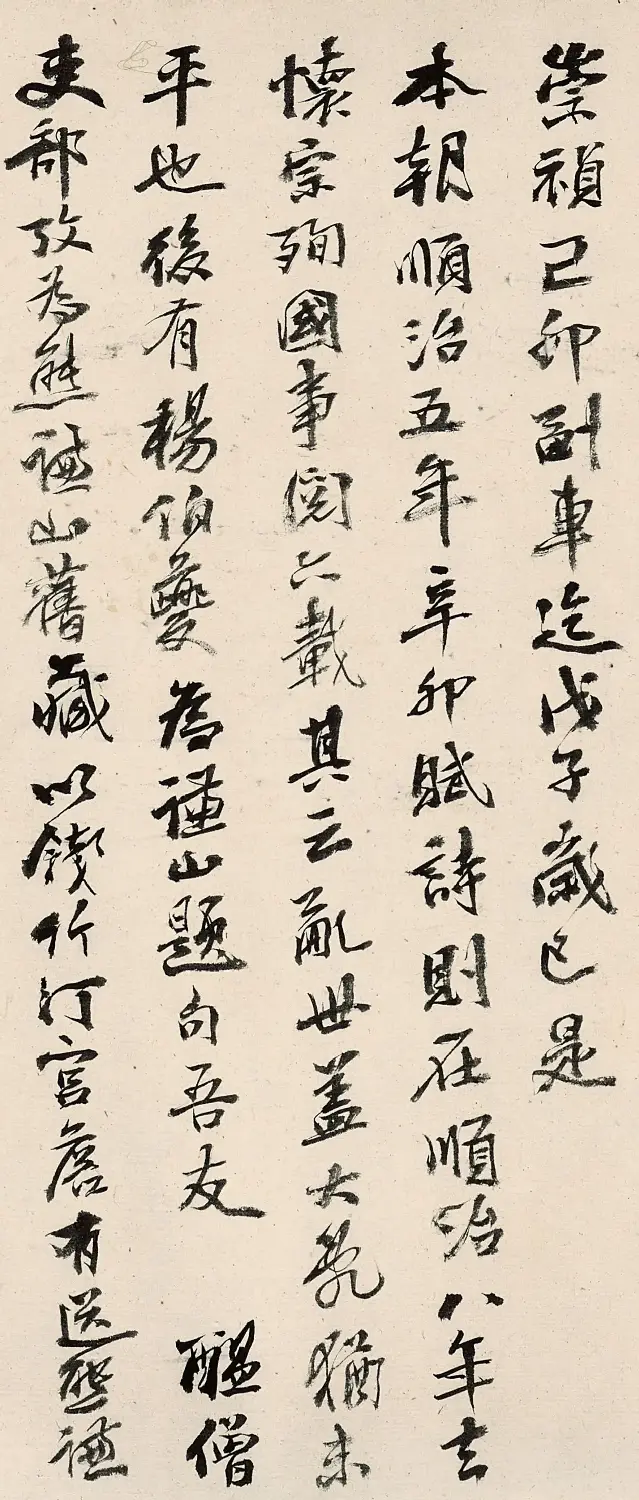 崇禎己卯副車迄戊子歲已是
本朝順治五年辛卯賦詩則在順治八年去
懷宗殉國事閱六載其云亂世蓋大亂猶未
平也後有楊伯夔為謙山題句吾友 醖僧
吏部攷為熊謙山舊藏以錢竹汀宮詹有送熊謙